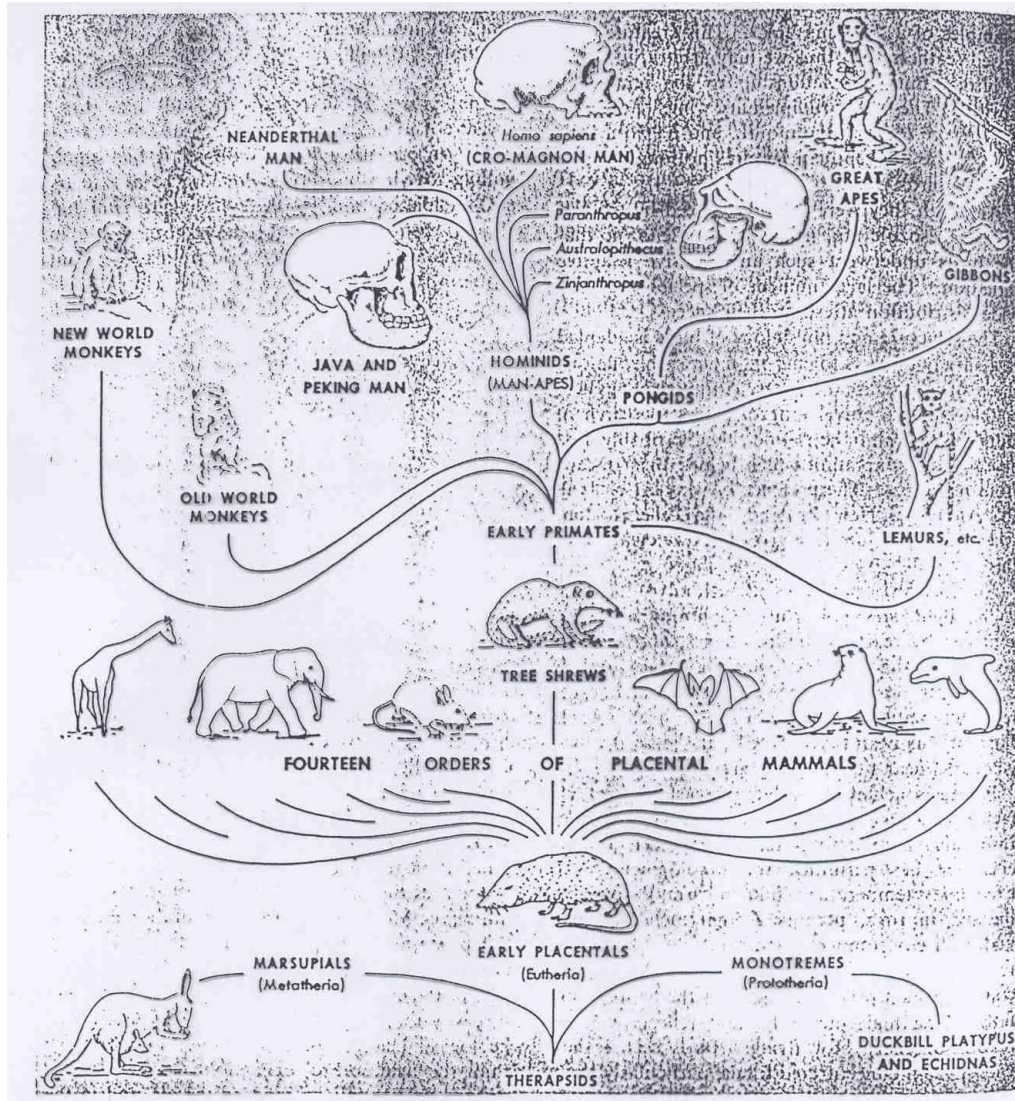 NEANDERTHAL
MAN
Homo sapiens
(CRO-MAGNON MAN)
GREAT
APES
Paranthropus
Australopithecus
Zinjanthropus
GIBBONS
NEW WORLD
MONKEYS
JAVA AND
PEKING MAN
HOMINIDS
(MAN-APES)
PONGIDS
OLD WORLD
MONKEYS
EARLY PRIMATES
LEMURS, etc.
TREE SHREWS
FOURTEEN ORDERS OF PLACENTAL MAMMALS
EARLY PLACENTALS
(Eutheria)
MARSUPIALS
(Metatheria)
MONOTREMES
(Prototheria)
DUCKBILL PLATYPUS
AND ECHIDNAS
THERAPSIDS